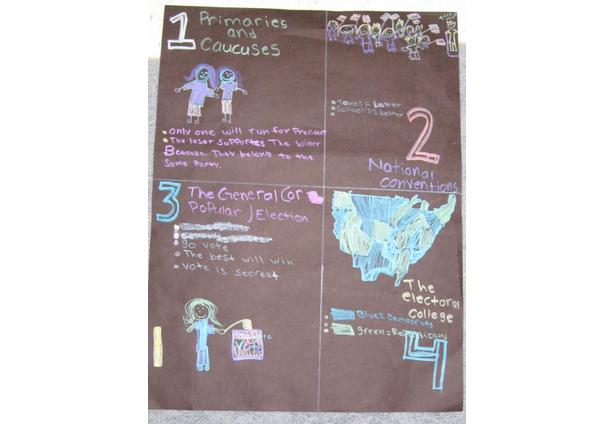 1 Primaries
and
Caucuses
Only one will run for President
The loser supportes The winer
Because They belong to the
Same Party.
Taxes= better
School's= better
2
National
conventions
3 The General (or
Popular) Election
go vote
The best will win
vote is secreat
The
electoral
college
Blue= Democrats
green= Republicans
4